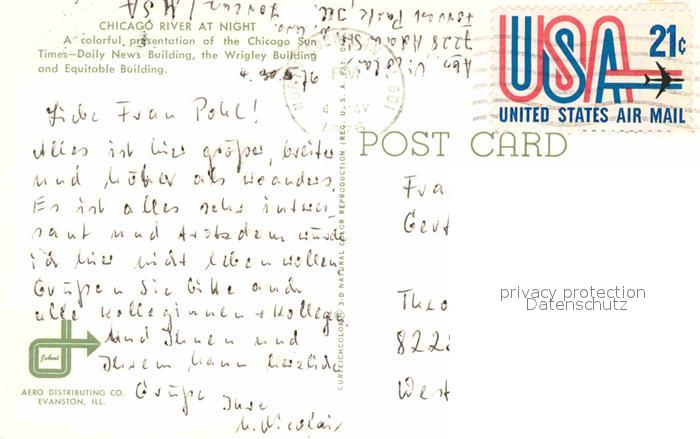 CHICAGO RIVER AT NIGHT
A colorful presentation of the Chicago Sun
Times—Daily News Building, the Wrigley Building
and Equitable Building.
Liebe Frau Pohl!
Alles ist hier größer, breiter
und höher als woanders.
Es ist alles sehr interes-
sant und trotzdem würde
ich hier nicht leben wollen.
Grüßen Sie bitte auch
alle Kolleginnen + Kollegen
und Ihnen und
Ihrem Mann herzliche
Grüße Ihre
Nicolai
Jobeul
AERO DISTRIBUTING CO.
EVANSTON, ILL.
CURTEICHCOLOR® 3-D NATURAL COLOR REPRODUCTION (REG. U. S. A. PAT. OFF.)
Abs. Nicolai
7228 Adams
Forest Park, Ill.
USA
USA 21¢
UNITED STATES AIR MAIL
POST CARD
Fra
Gert
Theo
822
West
privacy protection
Datenschutz